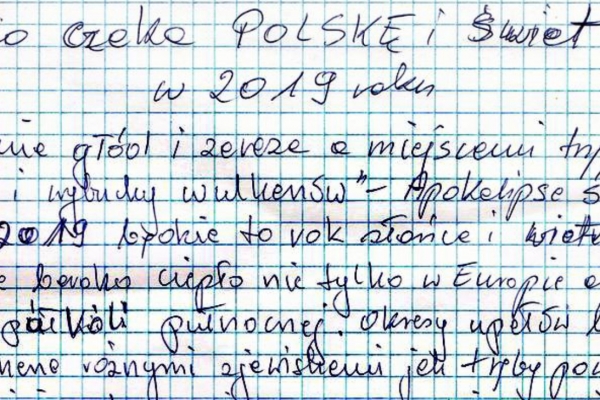 o czeka POLSKĘ i Świat
w 2019 roku
nie głód i zaraza a miejscami
i wybuchy wulkanów" - Apokalipsa
2019 to rok słońca i
ciepło nie tylko w Europie
półkóli północnej. okresy upałów
różnymi zjawiskami jak trąby